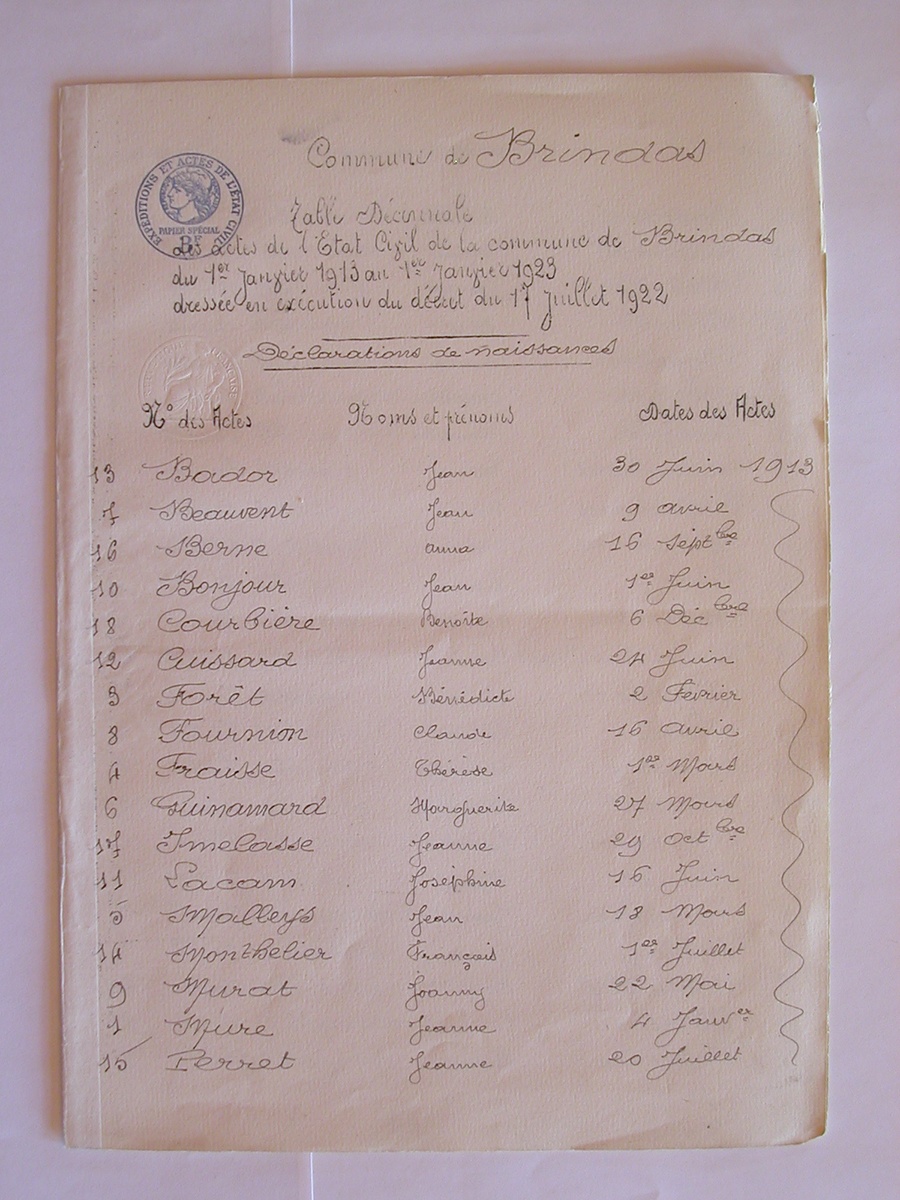 Commune de Brindas
EXPEDITIONS ET ACTES DE L'ÉTAT CIVIL
PAPIER SPÉCIAL
3F
Table Décennale
des actes de l'Etat Civil de la commune de Brindas
du 1er Janvier 1913 au 1er Janvier 1923
dressée en exécution du décret du 17 Juillet 1922
Déclarations de naissances
N° des Actes Noms et prénoms Dates des Actes
13 Bador Jean 30 Juin 1913
7 Beauvent Jean 9 avril
16 Berne anna 16 Septbre
10 Bonjour Jean 1er Juin
18 Courbière Benoîte 6 Décbre
12 Cuissard Jeanne 24 Juin
3 Forêt Bénédicte 2 Fevrier
8 Fournion Claude 16 avril
4 Fraisse Thérèse 1er Mars
6 Guinamard Marguerite 27 Mars
17 Imelasse Jeanne 29 octbre
11 Lacam Joséphine 16 Juin
5 Malleys Jean 18 Mars
14 Monthelier François 1er Juillet
9 Murat Joanny 22 Mai
1 Mure Jeanne 4 Janver
15 Perret Jeanne 20 Juillet